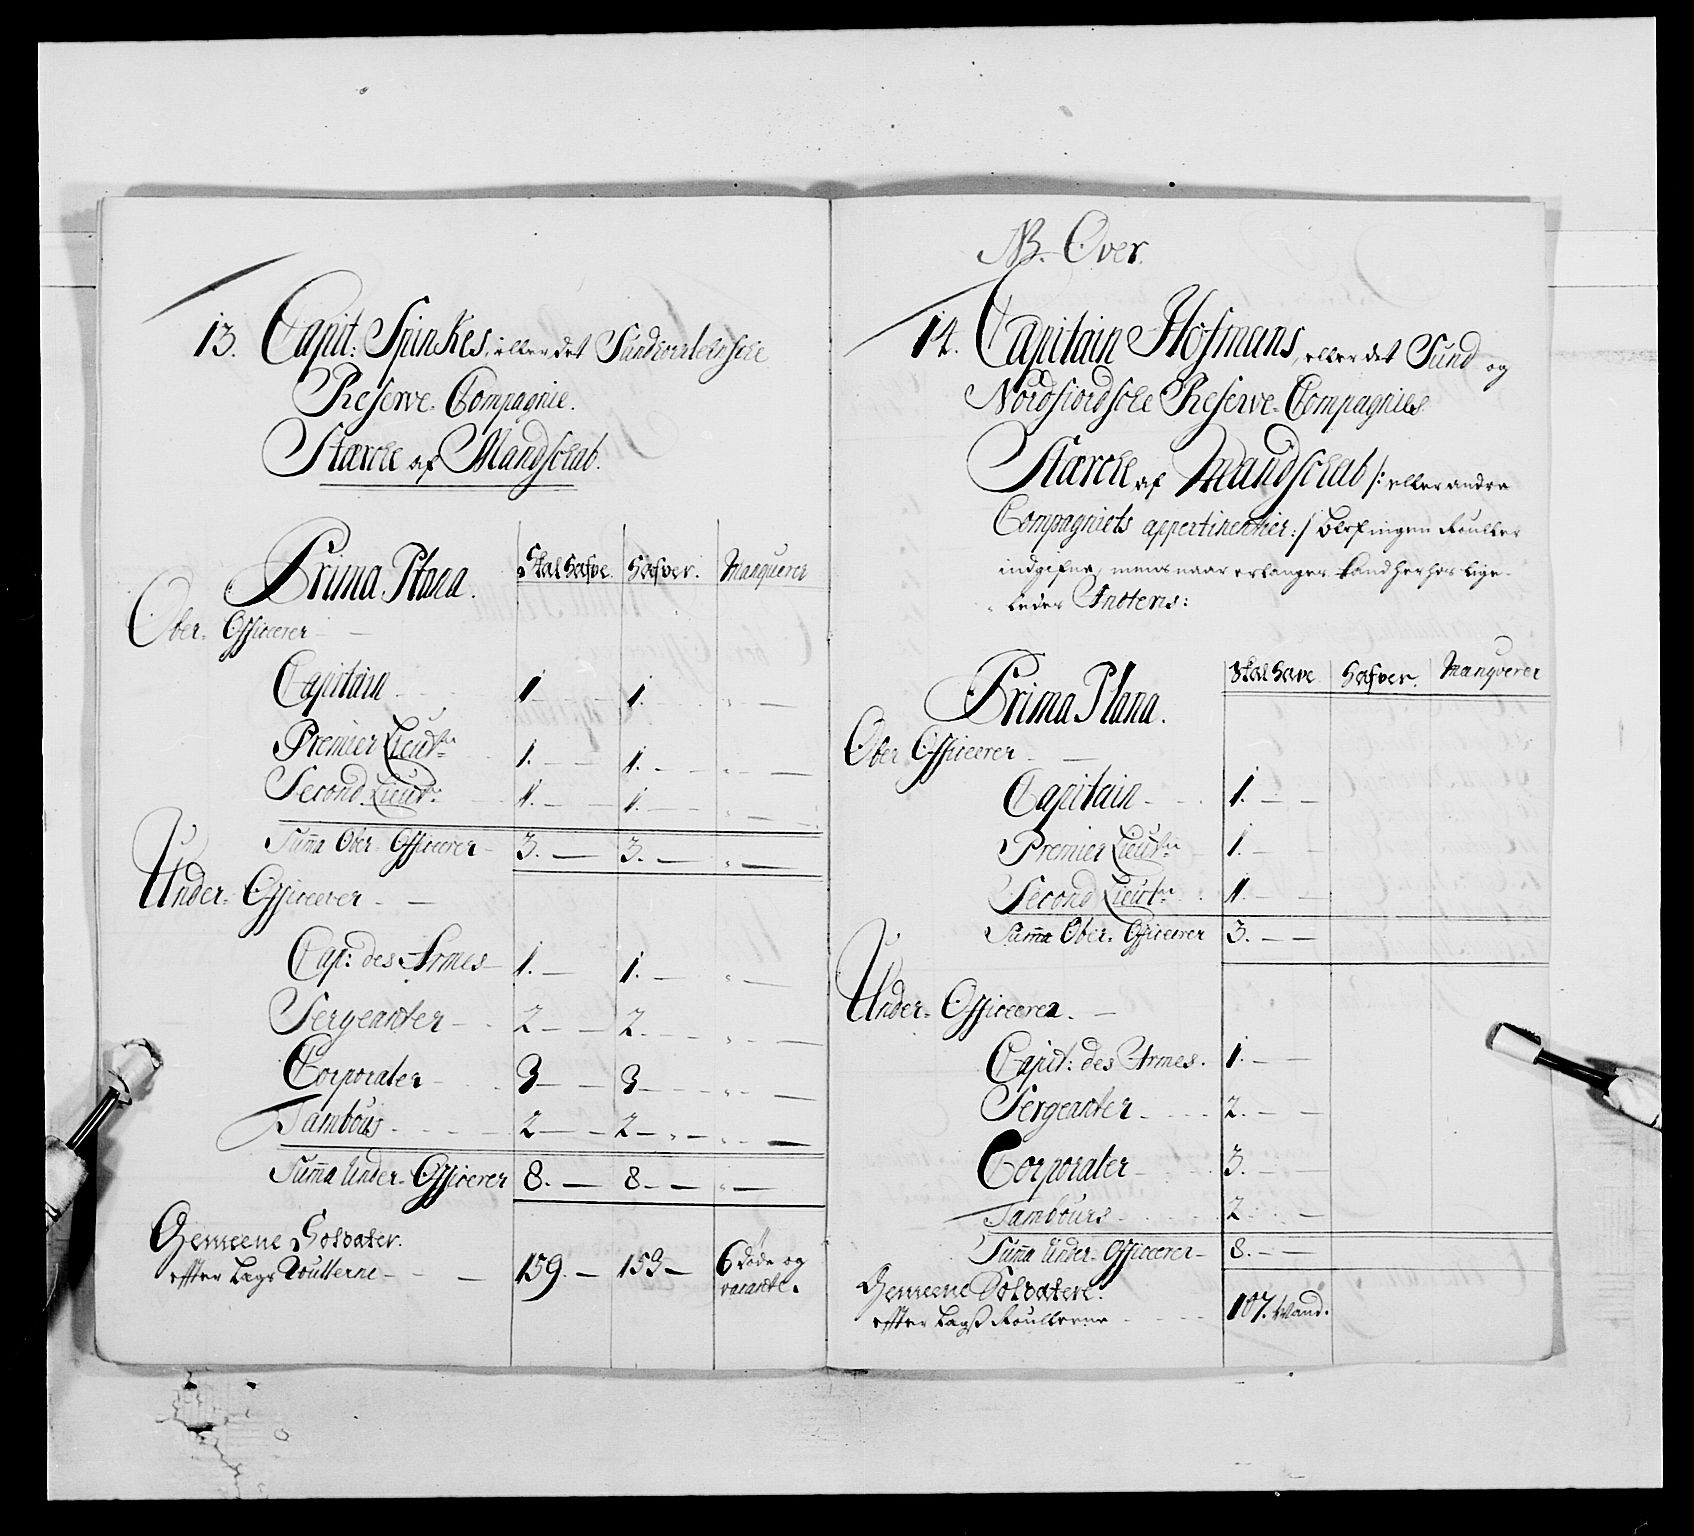 13. Capit: Spinkes, eller det Sundhordlehnsche
Reserve Compagnie.
Stærche af Mandschab.
Prima Plana. Skal hafve. Hafver. Manquerer
Ober-Officerer
Capitain 1 1.
Premier Lieutn 1. 1.
Second Lieut: 1. 1.
Suma Ober-Officerer 3. 3.
Under-Officerer
Cap: des Armes 1. 1.
Sergeanter 2 2.
Corporaler 3 3
Tambours 2 2
Suma Under-Officerer 8. 8.
Gemeene Soldater.
effter Lags Roullerne 159. 153 6 døde og
vacante.
NB. Over.
14. Capitain Hofmans, eller det Sund og
Nordfiordsche Reserve-Compagnies
Stærche af Mandschab /: eller andre
Compagniets appertinentier :/ blef ingen Rouller
indgifne, mens naar erlanges kand her hos lige-
ledes Inoteris:
Prima Plana. Skal have Hafver. Manqverer
Ober Officerer
Capitain 1.
Premier Lieutn 1.
Second Lieutn 1.
Suma Ober-Officerer 3.
Under-Officerer.
Capit: des Armes. 1.
Sergeanter 2.
Corporaler 3.
Tambours 2
Suma Under-Officerer 8.
Gemeene Soldatere.
effter Lags Roullerne 107. Mand.